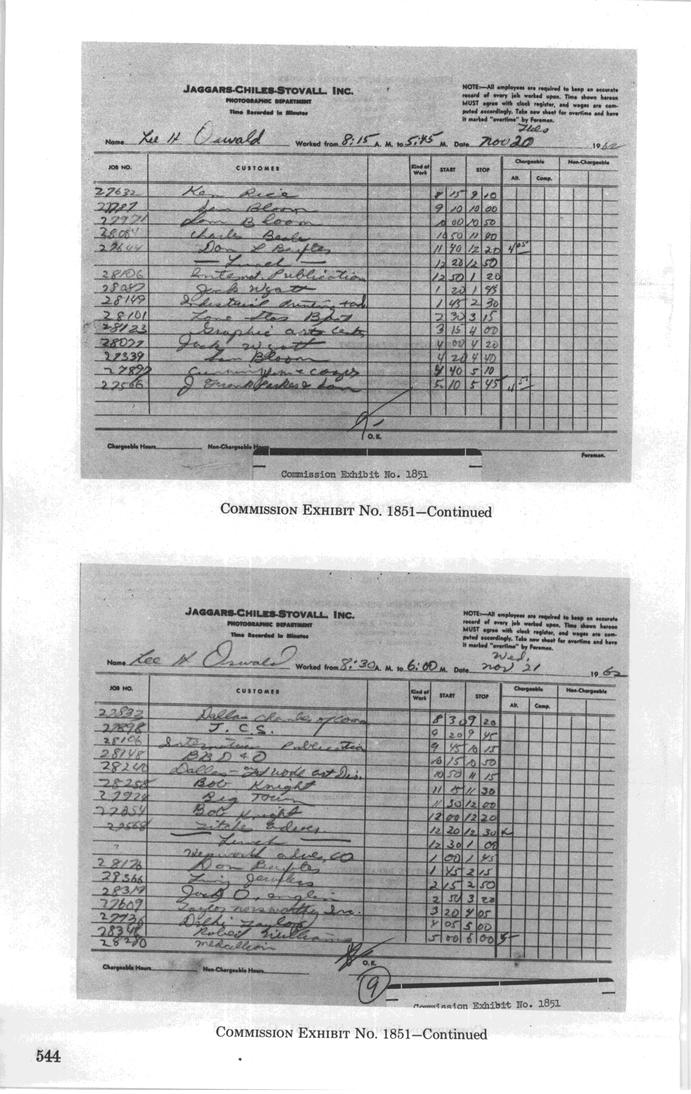 JAGGARS-CHILES-STOVALL, INC.
PHOTOGRAPHIC DEPARTMENT
Time Recorded in Minutes
NOTE:—All employees are required to keep an accurate
record of every job worked upon. Time shown hereon
MUST agree with clock register, and wages are com-
puted accordingly. Take new sheet for overtime and have
it marked "overtime" by Foreman.
Tues
Name Lee H Oswald Worked from 8:15 A. M. to 5:45 M. Date Nov 20 1962
JOB NO. CUSTOMER Kind of Work START STOP Chargeable Non-Chargeable
Alt. Comp.
27632 Ken Rice 8 15 9 10
Sam Bloom 9 10 10 00
27971 Sam Bloom 10 00 10 50
28084 Charles Beale 10 50 11 40
Don L Baxter 11 40 12 20
— Lunch — 12 20 12 50
28106 Internat. Publication 12 50 1 20
28087 Jack Wyatt 1 20 1 45
28149 Industrial printing 1 45 2 30
28101 Lone Star Boat 2 30 3 15
28123 Graphic arts 3 15 4 00
28077 Jack Wyatt 4 00 4 20
27339 Sam Bloom 4 20 4 40
4 40 5 10
27566 J Frank Parkes & Son 5 10 5 45
O.K.
Chargeable Hours Non-Chargeable Hours Foreman.
Commission Exhibit No. 1851
COMMISSION EXHIBIT No. 1851—Continued
JAGGARS-CHILES-STOVALL, INC.
PHOTOGRAPHIC DEPARTMENT
Time Recorded in Minutes
NOTE:—All employees are required to keep an accurate
record of every job worked upon. Time shown hereon
MUST agree with clock register, and wages are com-
puted accordingly. Take new sheet for overtime and have
it marked "overtime" by Foreman.
Wed.
Name Lee H Oswald Worked from 8:30 A. M. to 6:00 M. Date Nov 21 1962
JOB NO. CUSTOMER Kind of Work START STOP Chargeable Non-Chargeable
Alt. Comp.
27832 Dallas 8 30 9 20
27898 J.C.S. 9 20 9 45
28106 Internation Publication 9 45 10 15
28148 BBD & O 10 15 10 50
28240 Dallas 10 50 11 15
28258 Bob Knight 11 15 11 30
27924 Big Town 11 30 12 00
27854 Bob Knight 12 00 12 20
27568 12 20 12 30
— Lunch — 12 30 1 00
Hepworth advt. co 1 00 1 45
28176 Don Baxter 1 45 2 15
28366 2 15 2 50
28319 Jack O. 2 50 3 20
27609 Taylor Norsworthy Inc. 3 20 4 05
27736 Delhi Taylor 4 05 5 00
28348 Robert Williams 5 00 6 00
28280 Medallion
O.K.
9
Chargeable Hours Non-Chargeable Hours
Commission Exhibit No. 1851
COMMISSION EXHIBIT No. 1851—Continued
544